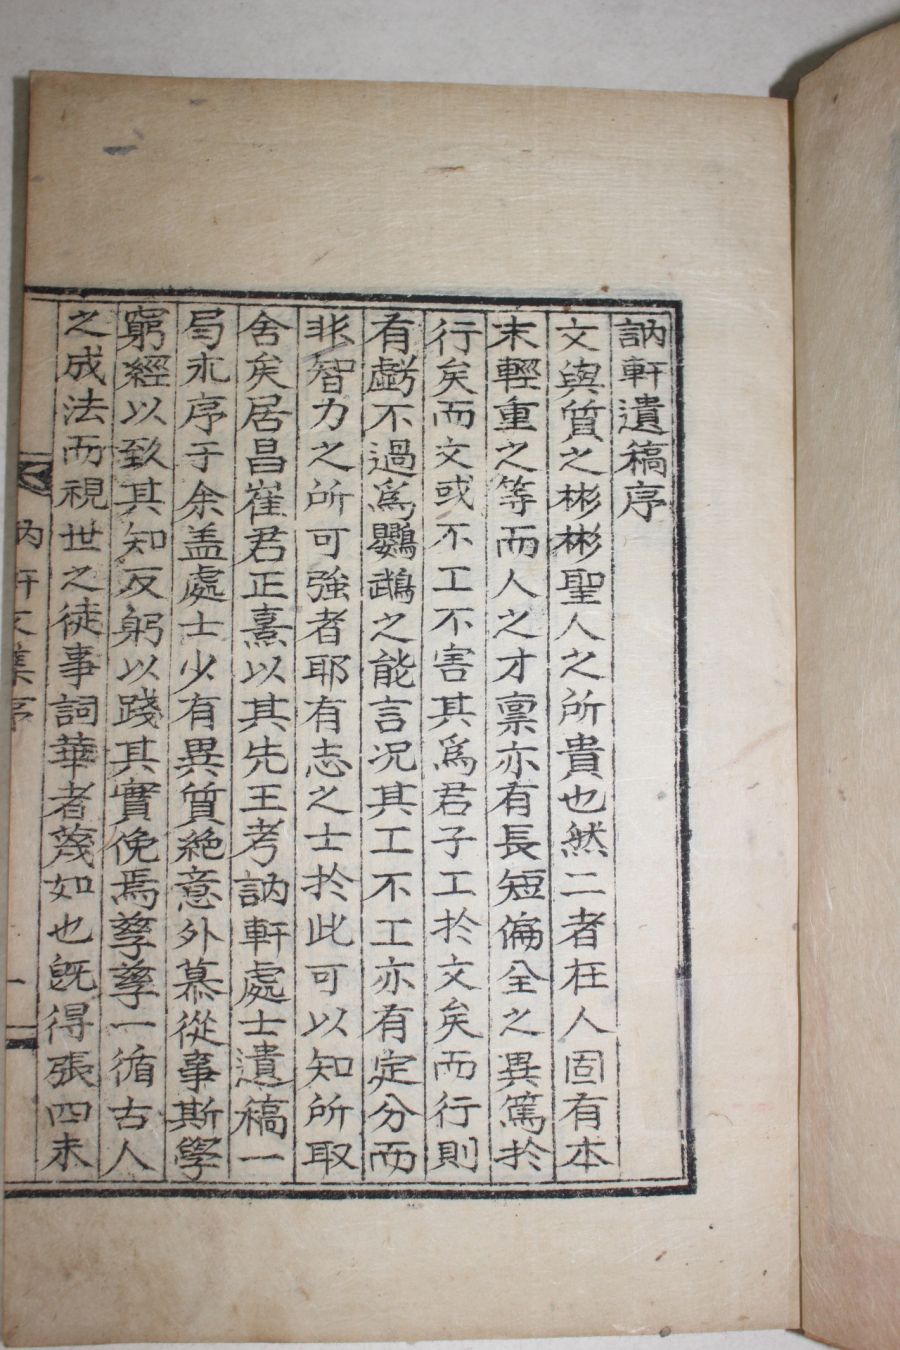 訥軒遺稿序
文與質之彬彬聖人之所貴也然二者在人固有本
末輕重之等而人之才稟亦有長短偏全之異篤於
行矣而文或不工不害其爲君子工於文矣而行則
有虧不過爲鸚鵡之能言况其工不工亦有定分而
非智力之所可強者耶有志之士於此可以知所取
舍矣居昌崔君正熹以其先王考訥軒處士遺稿一
局求序于余盖處士少有異質絶意外慕從事斯學
窮經以致其知反躬以踐其實俛焉孳孳一循古人
之成法而視世之徒事詞華者蔑如也旣得張四未
訥軒文集序
一